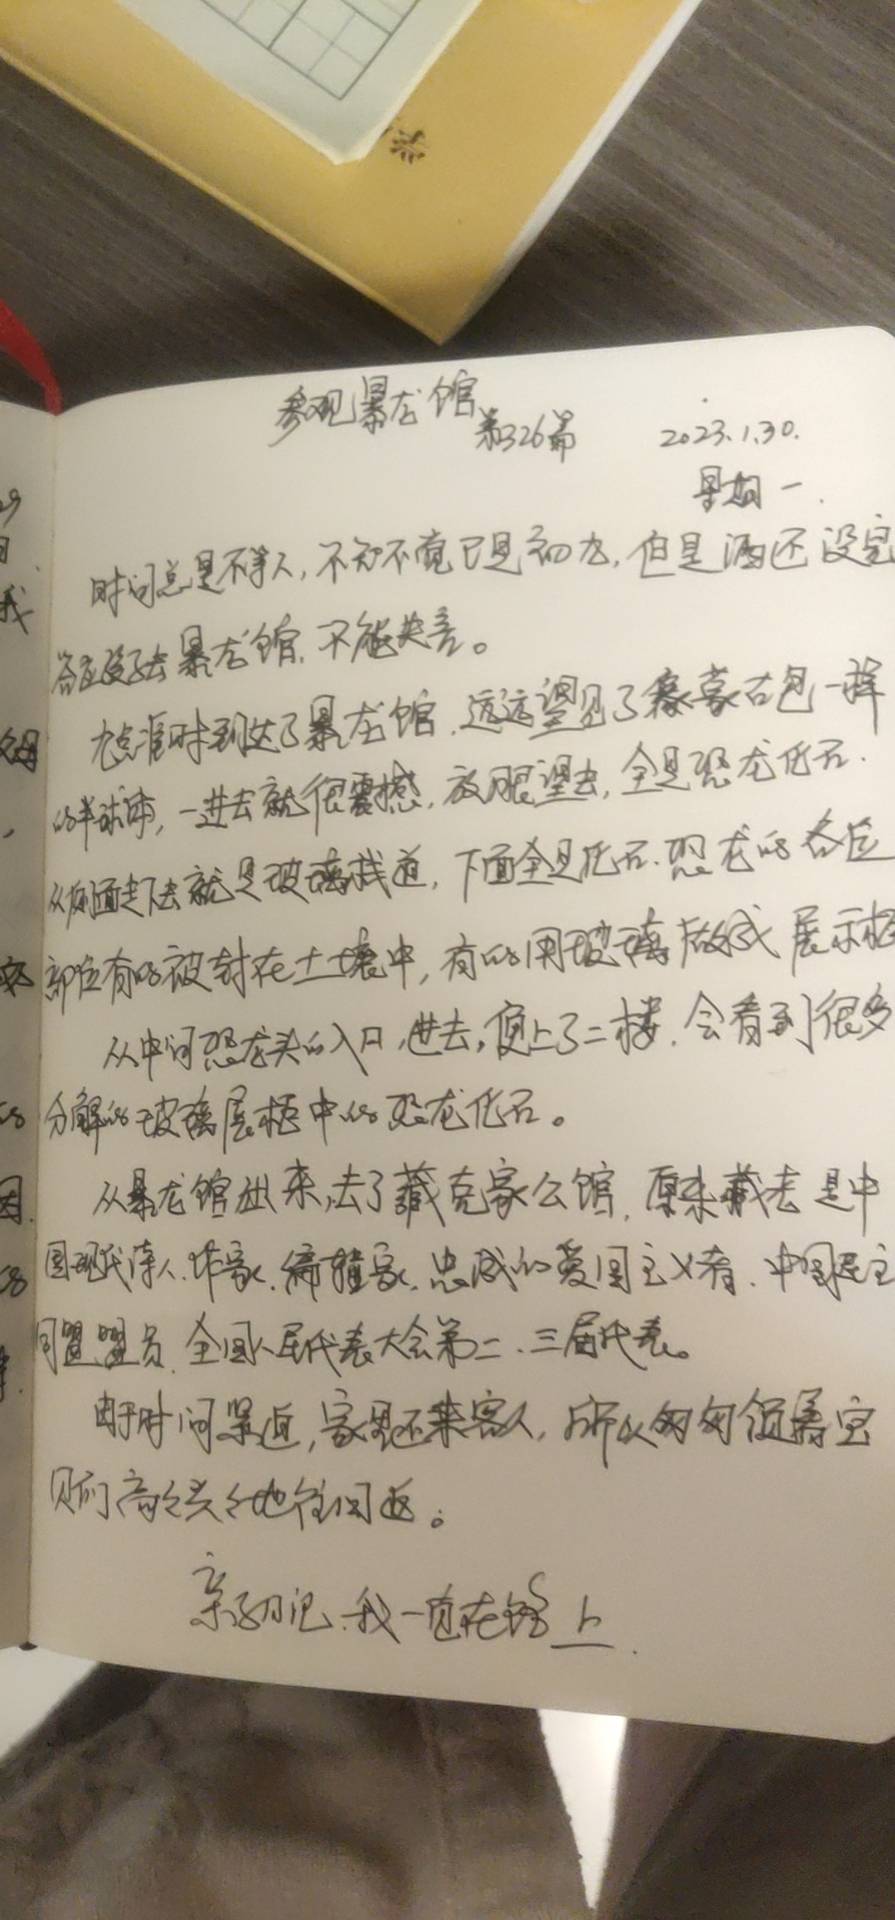 参观暴龙馆
第326篇 2023.1.30.
星期一.
时间总是不等人,不知不觉已是初九,但是还没完
答应孩子去暴龙馆,不能失言。
九点准时到达了暴龙馆,远远望见了像蒙古包一样
的半球体,一进去就很震撼,放眼望去,全是恐龙化石.
从侧面走下去就是玻璃栈道,下面全是化石.恐龙的各位
部位有的被封在土壤中,有的用玻璃做成展示柜
从中间恐龙头的入口,进去,便上了二楼.会看到很多
分解的玻璃展柜中的恐龙化石。
从暴龙馆出来,去了藏克家公馆,原来藏老是中
国现代诗人.作家.编辑家.忠诚的爱国主义者.中国民主
同盟盟员.全国人民代表大会第二.三届代表。
由于时间紧迫,家里还来客人,所以匆匆领着宝
贝们高高兴兴地往回返。
亲子日记.我一直在路上.